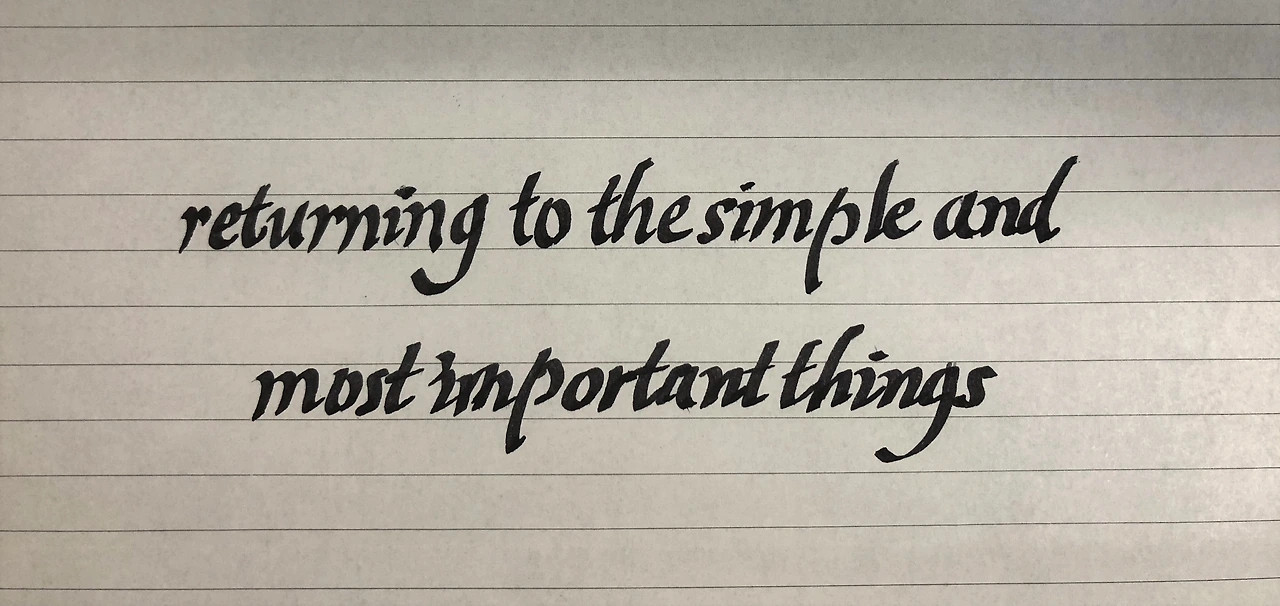 returning to the simple and
most important things